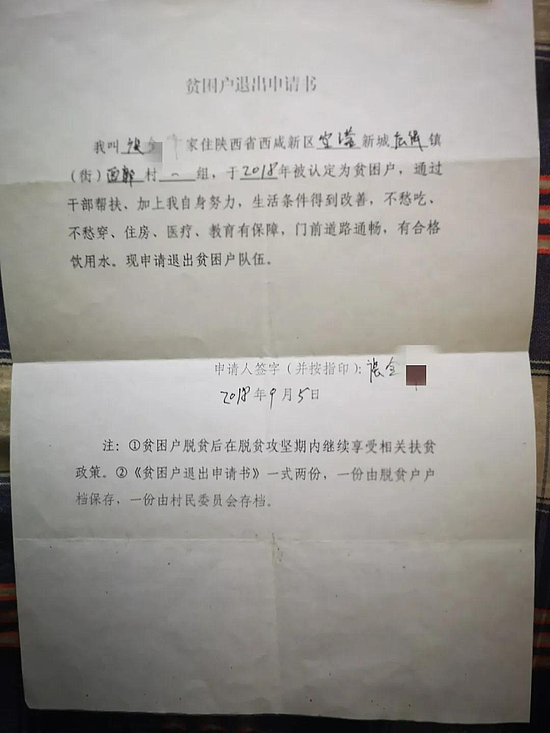 贫困户退出申请书
我叫张全 家住陕西省西咸新区空港新城底张镇
(街)西郭村一组，于2018年被认定为贫困户，通过
干部帮扶、加上我自身努力，生活条件得到改善，不愁吃、
不愁穿、住房、医疗、教育有保障，门前道路通畅，有合格
饮用水。现申请退出贫困户队伍。
申请人签字(并按指印)：张全
2018年9月5日
注：①贫困户脱贫后在脱贫攻坚期内继续享受相关扶贫
政策。②《贫困户退出申请书》一式两份，一份由脱贫户户
档保存，一份由村民委员会存档。